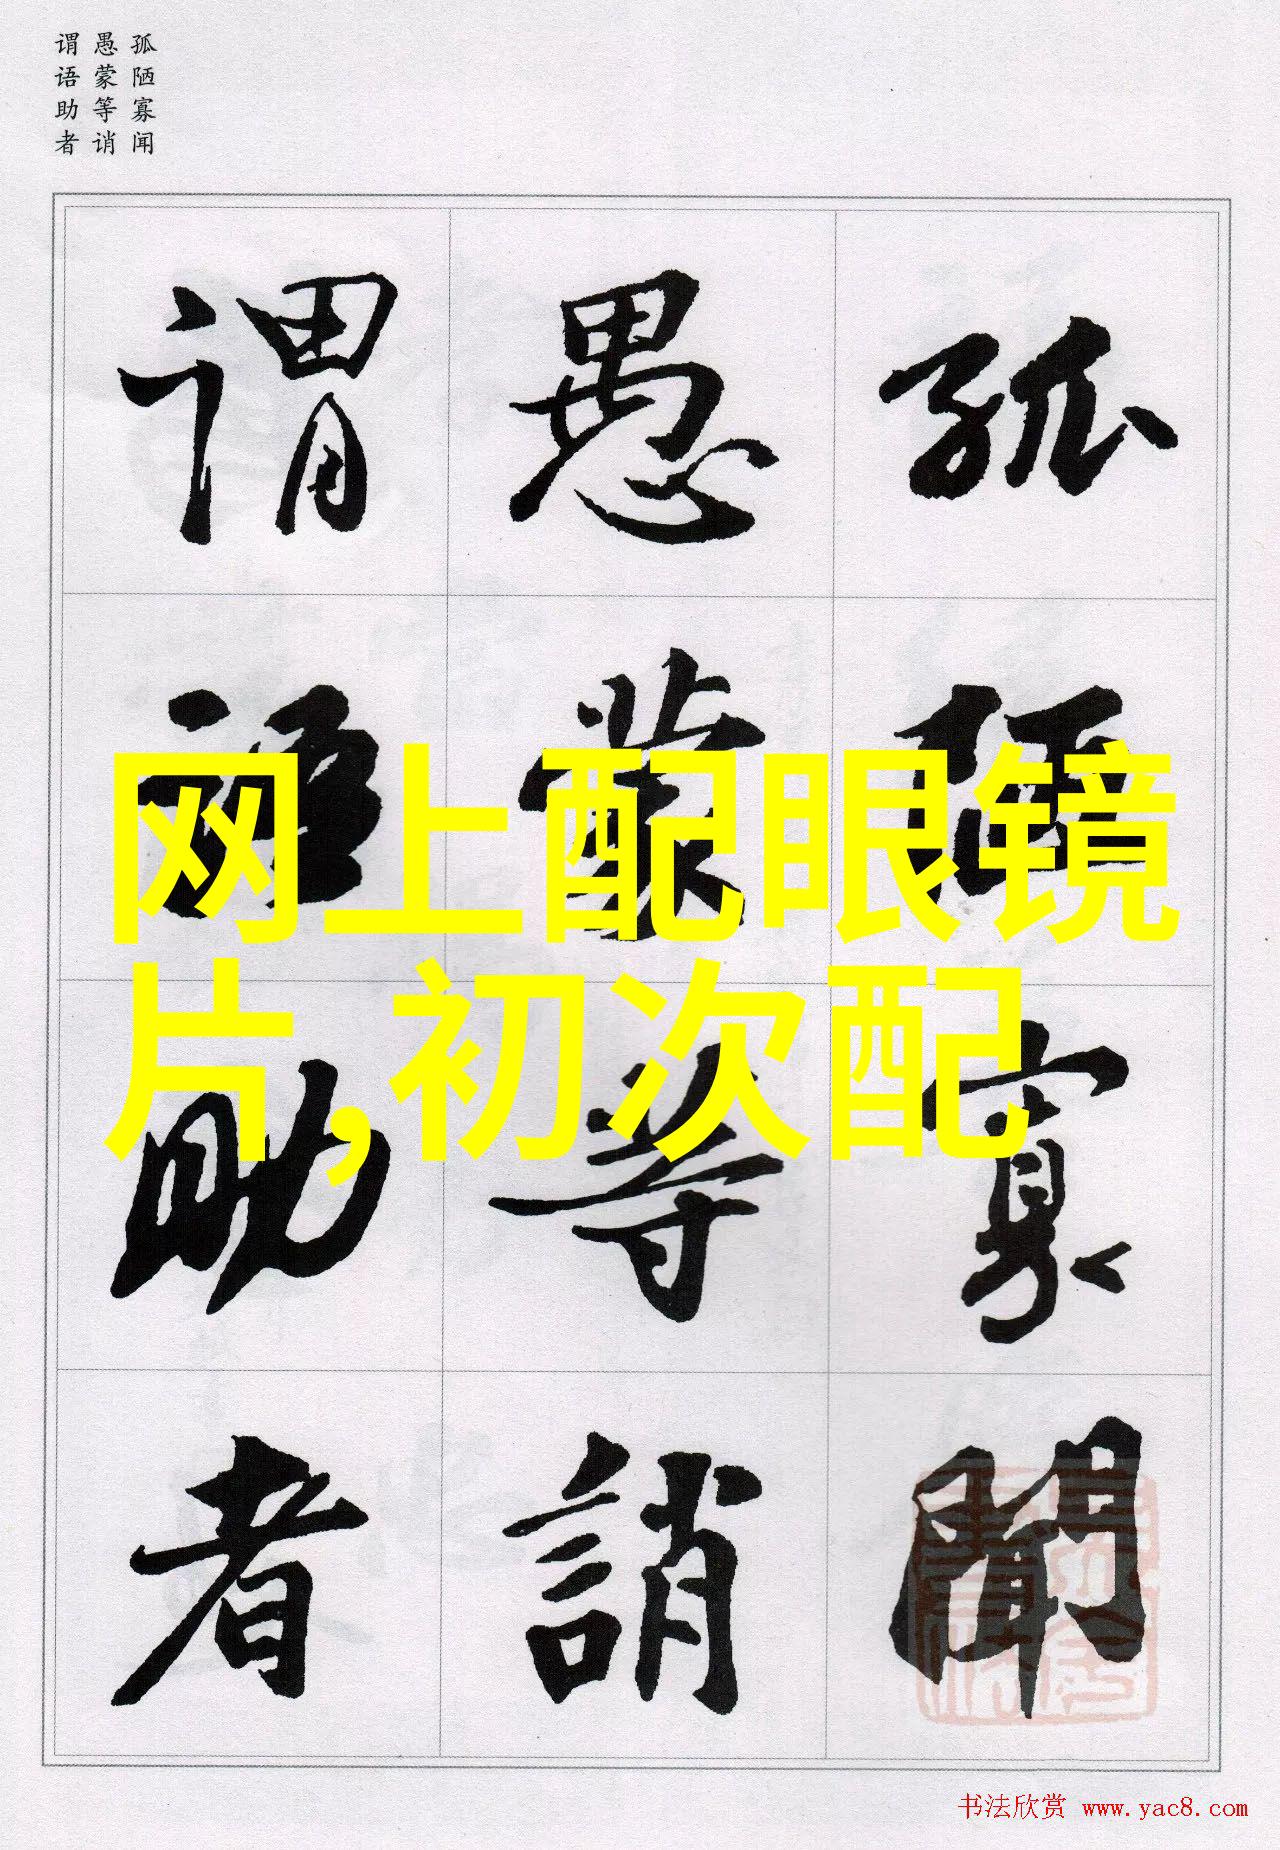 孤陋寡闻
愚蒙等诮
谓语助者
孤陋寡闻
愚蒙等誚
谓语助者
网上配眼镜
片,初次配
书法欣赏 www.yac8.com